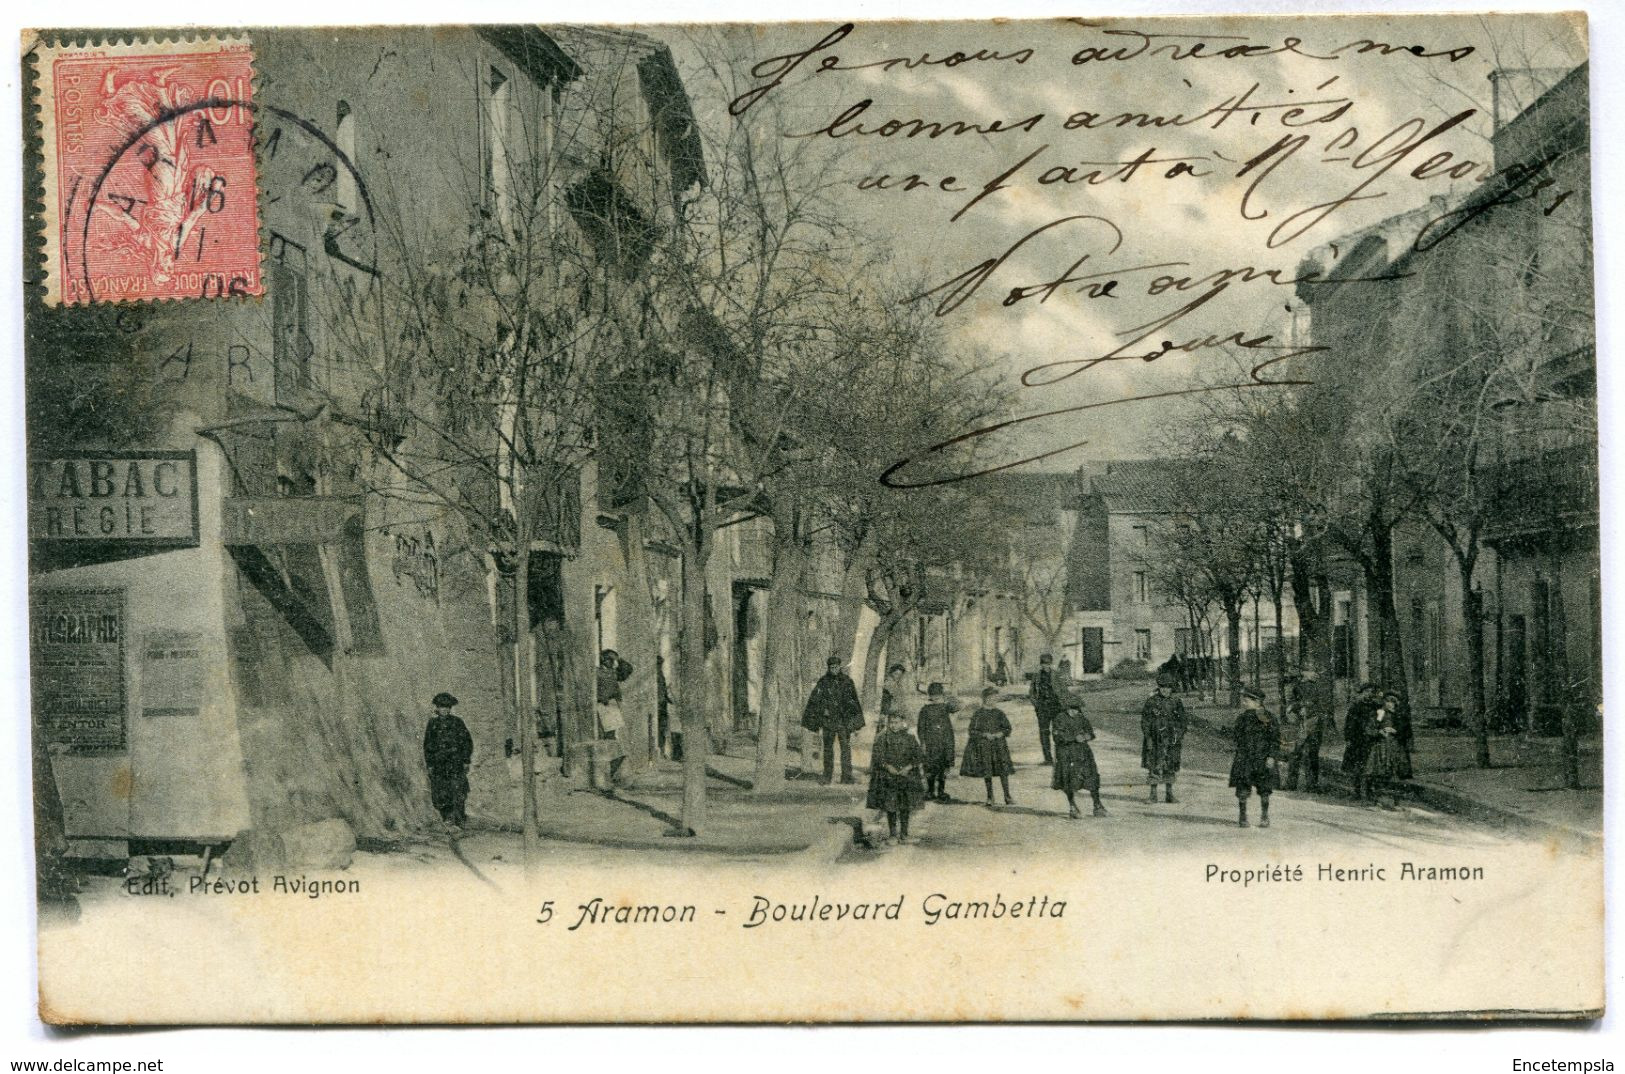 Je vous adresse mes
bonnes amitiés
une part à Mr Georges
Votre ami
Louis
10
POSTES
REPUBLIQUE FRANÇAISE
ARAMON
16
11
06
GARD
TABAC
REGIE
Edit. Prévot Avignon
5 Aramon - Boulevard Gambetta
Propriété Henric Aramon
www.delcampe.net
Encetempsla